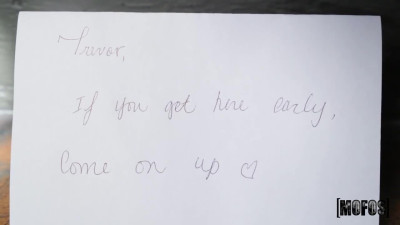 Trevor,
If you get here early,
Come on up ♡
[MOFOS]